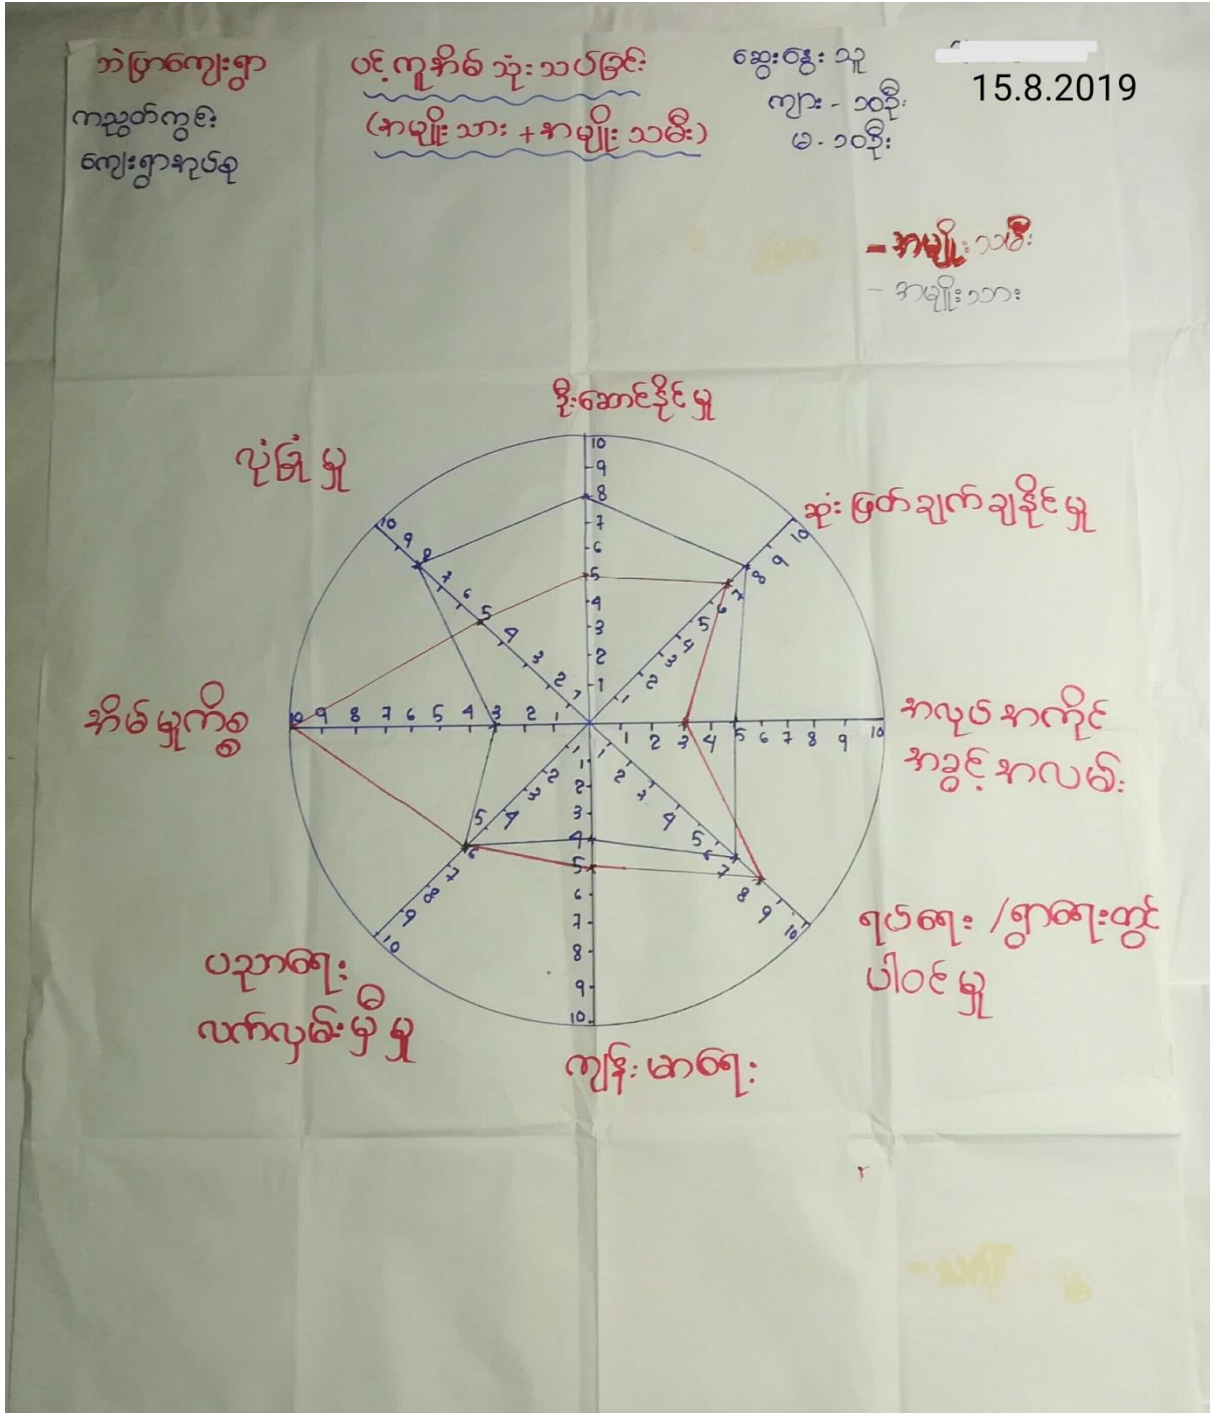 ဘဲဗြာကျေးရွာ
ကညွတ်ကွင်း
ကျေးရွာအုပ်စု
ပင့်ကူအိမ် သုံးသပ်ခြင်း
(အမျိုးသား + အမျိုးသမီး)
ဆွေးနွေးသူ
ကျား - ၁၀ဦး
မ - ၁၀ဦး
15.8.2019
- အမျိုးသမီး
- အမျိုးသား
ဦးဆောင်နိုင်မှု
ဆုံးဖြတ်ချက်ချနိုင်မှု
အလုပ်အကိုင်
အခွင့်အလမ်း
ရပ်ရေး /ရွာရေးတွင်
ပါဝင်မှု
ကျန်းမာရေး
ပညာရေး
လက်လှမ်းမှီမှု
အိမ်မှုကိစ္စ
လုံခြုံမှု
10
9
8
7
6
5
4
3
2
1
1 2 3 4 5 6 7 8 9 10
1 2 3 4 5 6 7 8 9 10
1 2 3 4 5 6 7 8 9 10
1
2
3
4
5
6
7
8
9
10
1 2 3 4 5 6 7 8 9 10
10 9 8 7 6 5 4 3 2 1
10 9 8 7 6 5 4 3 2 1